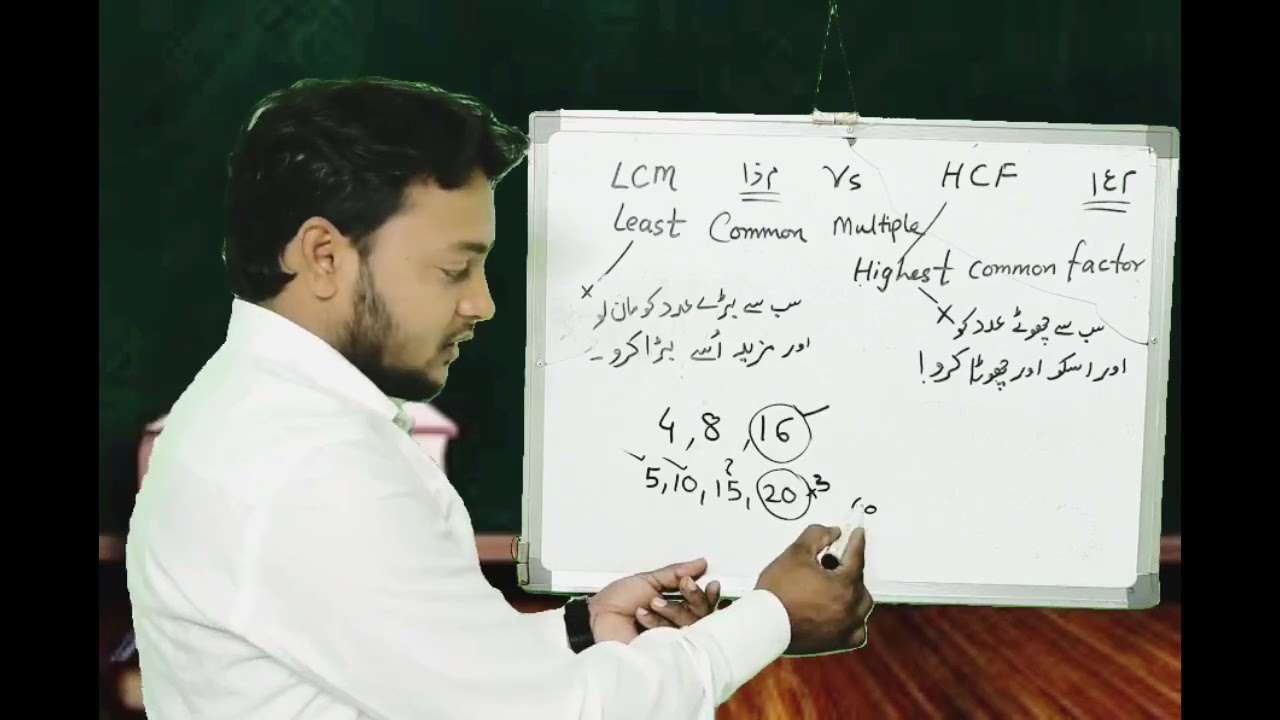 LCM ذ م ا Vs HCF ا ع م
Least Common Multiple
Highest common factor
سب سے بڑے عدد کو مان لو
اور مزید اُسے بڑا کرو۔
سب سے چھوٹے عدد کو
اور اسکو اور چھوٹا کرو!
4, 8, 16
5, 10, 15, 20 ×3 60